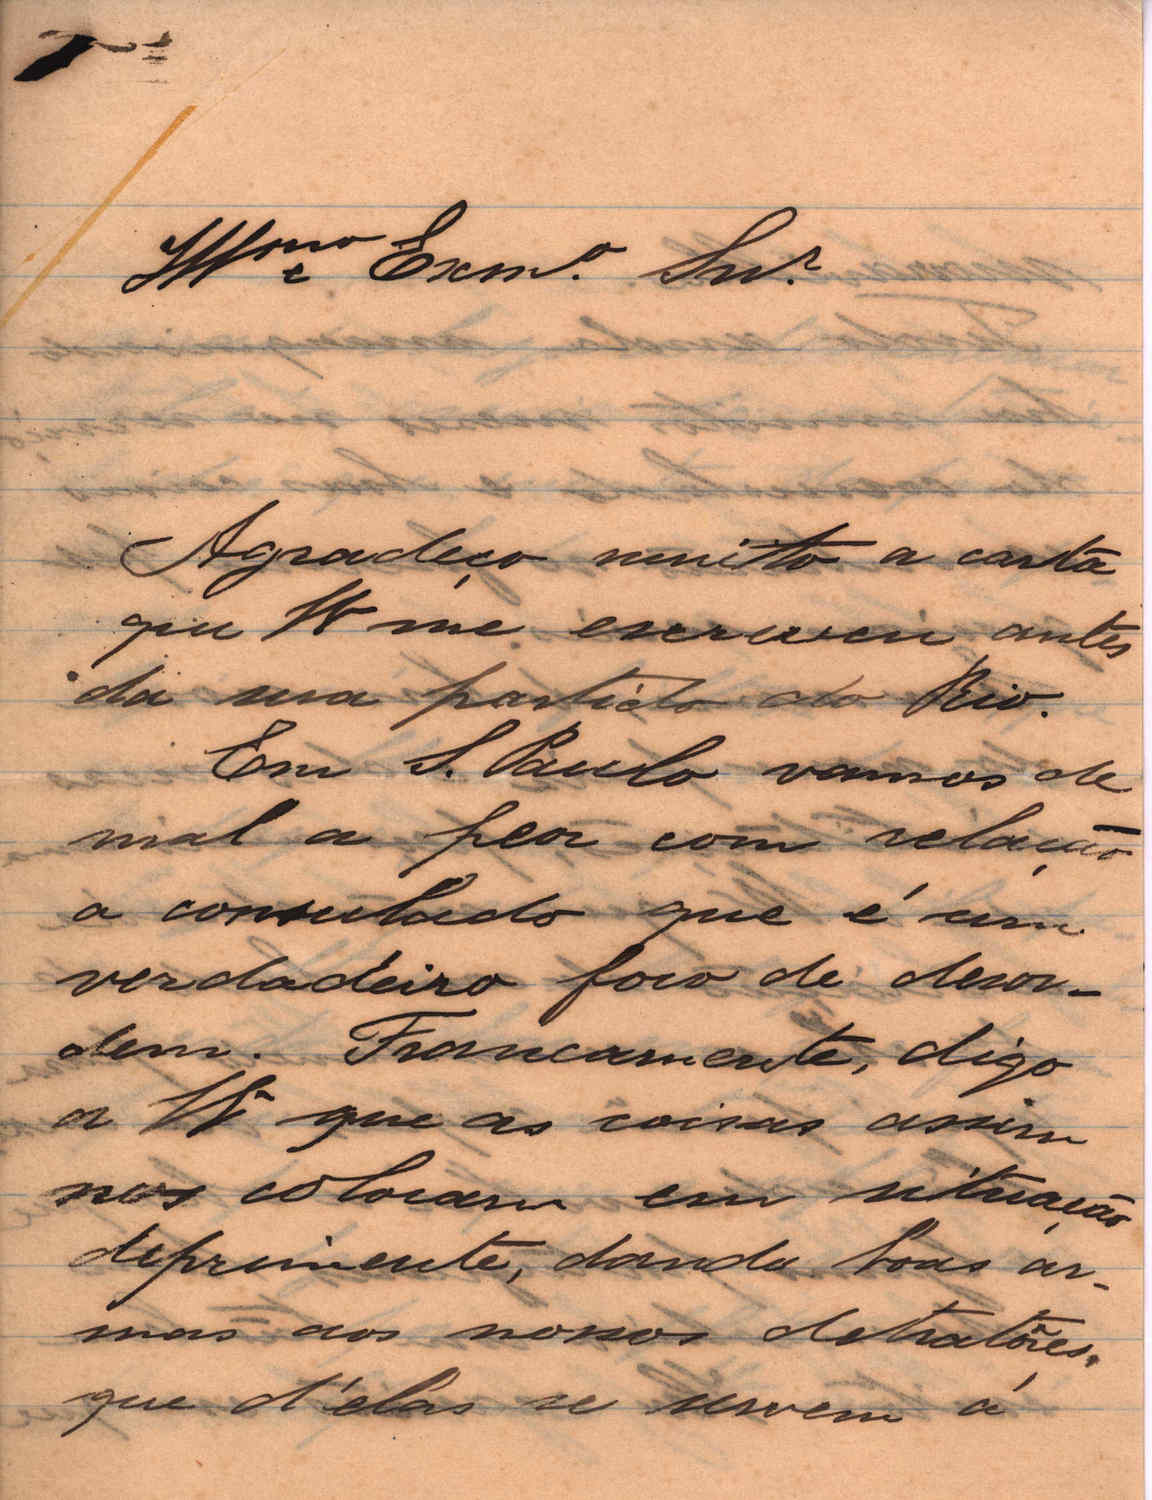 Illmo e Exmo. Snr.
Agradeço muito a carta
que V me escreveu antes
da sua partida do Rio.
Em S. Paulo vamos de
mal a peor com relação
a consulado que é um
verdadeiro foco de desor-
dem. Francamente, digo
a V que as coisas assim
nos colocam em situação
deprimente, dando boas ar-
mas aos nossos detratôres,
que d'elas se servem á